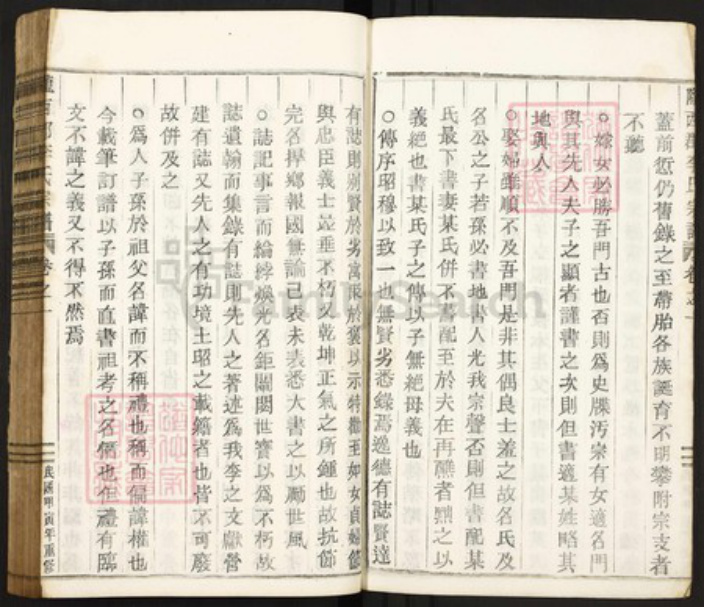 蓋前愆仍舊錄之至帶胎各族誕育不明攀附宗支者
不聽
○嫁女必勝吾門古也否則為史牒汚崇有女適名門
與其先人夫子之顯者謹書之次則但書適某姓略其
地與人
○娶婦雖順不及吾門是非其偶良士羞之故名氏及
名公之子若孫必書地書人光我宗聲否則但書配某
氏最下書妻某氏併不書配至於夫在再醮者黜之以
義絕也書某氏子之傳以子無絕母義也
○傳序昭穆以致一也無賢劣悉錄焉逸德有誌賢達
有誌則別賢於劣寓
於褒以示特
至如女貞婦節
與忠臣義士並垂不朽又乾坤正氣之所鍾也故抗節
完名捍鄉報國無論已表未表悉大書之以勵世風
○誌記事言而綸綍煥光名鉅關閎世寶以為不朽故
誌遺翰而集錄有誌則先人之著述為我李之文獻營
建有誌又先人之有功境土昭之載籍者也皆不可廢
故併及之
○為人子孫於祖父名諱而不稱禮也稱而偏諱權也
今載筆訂譜以子孫而直書祖考之名偪也但禮有臨
文不諱之義又不得不然焉
隴西郡李氏宗譜 卷之一
民國甲寅年重修
FamilySearch